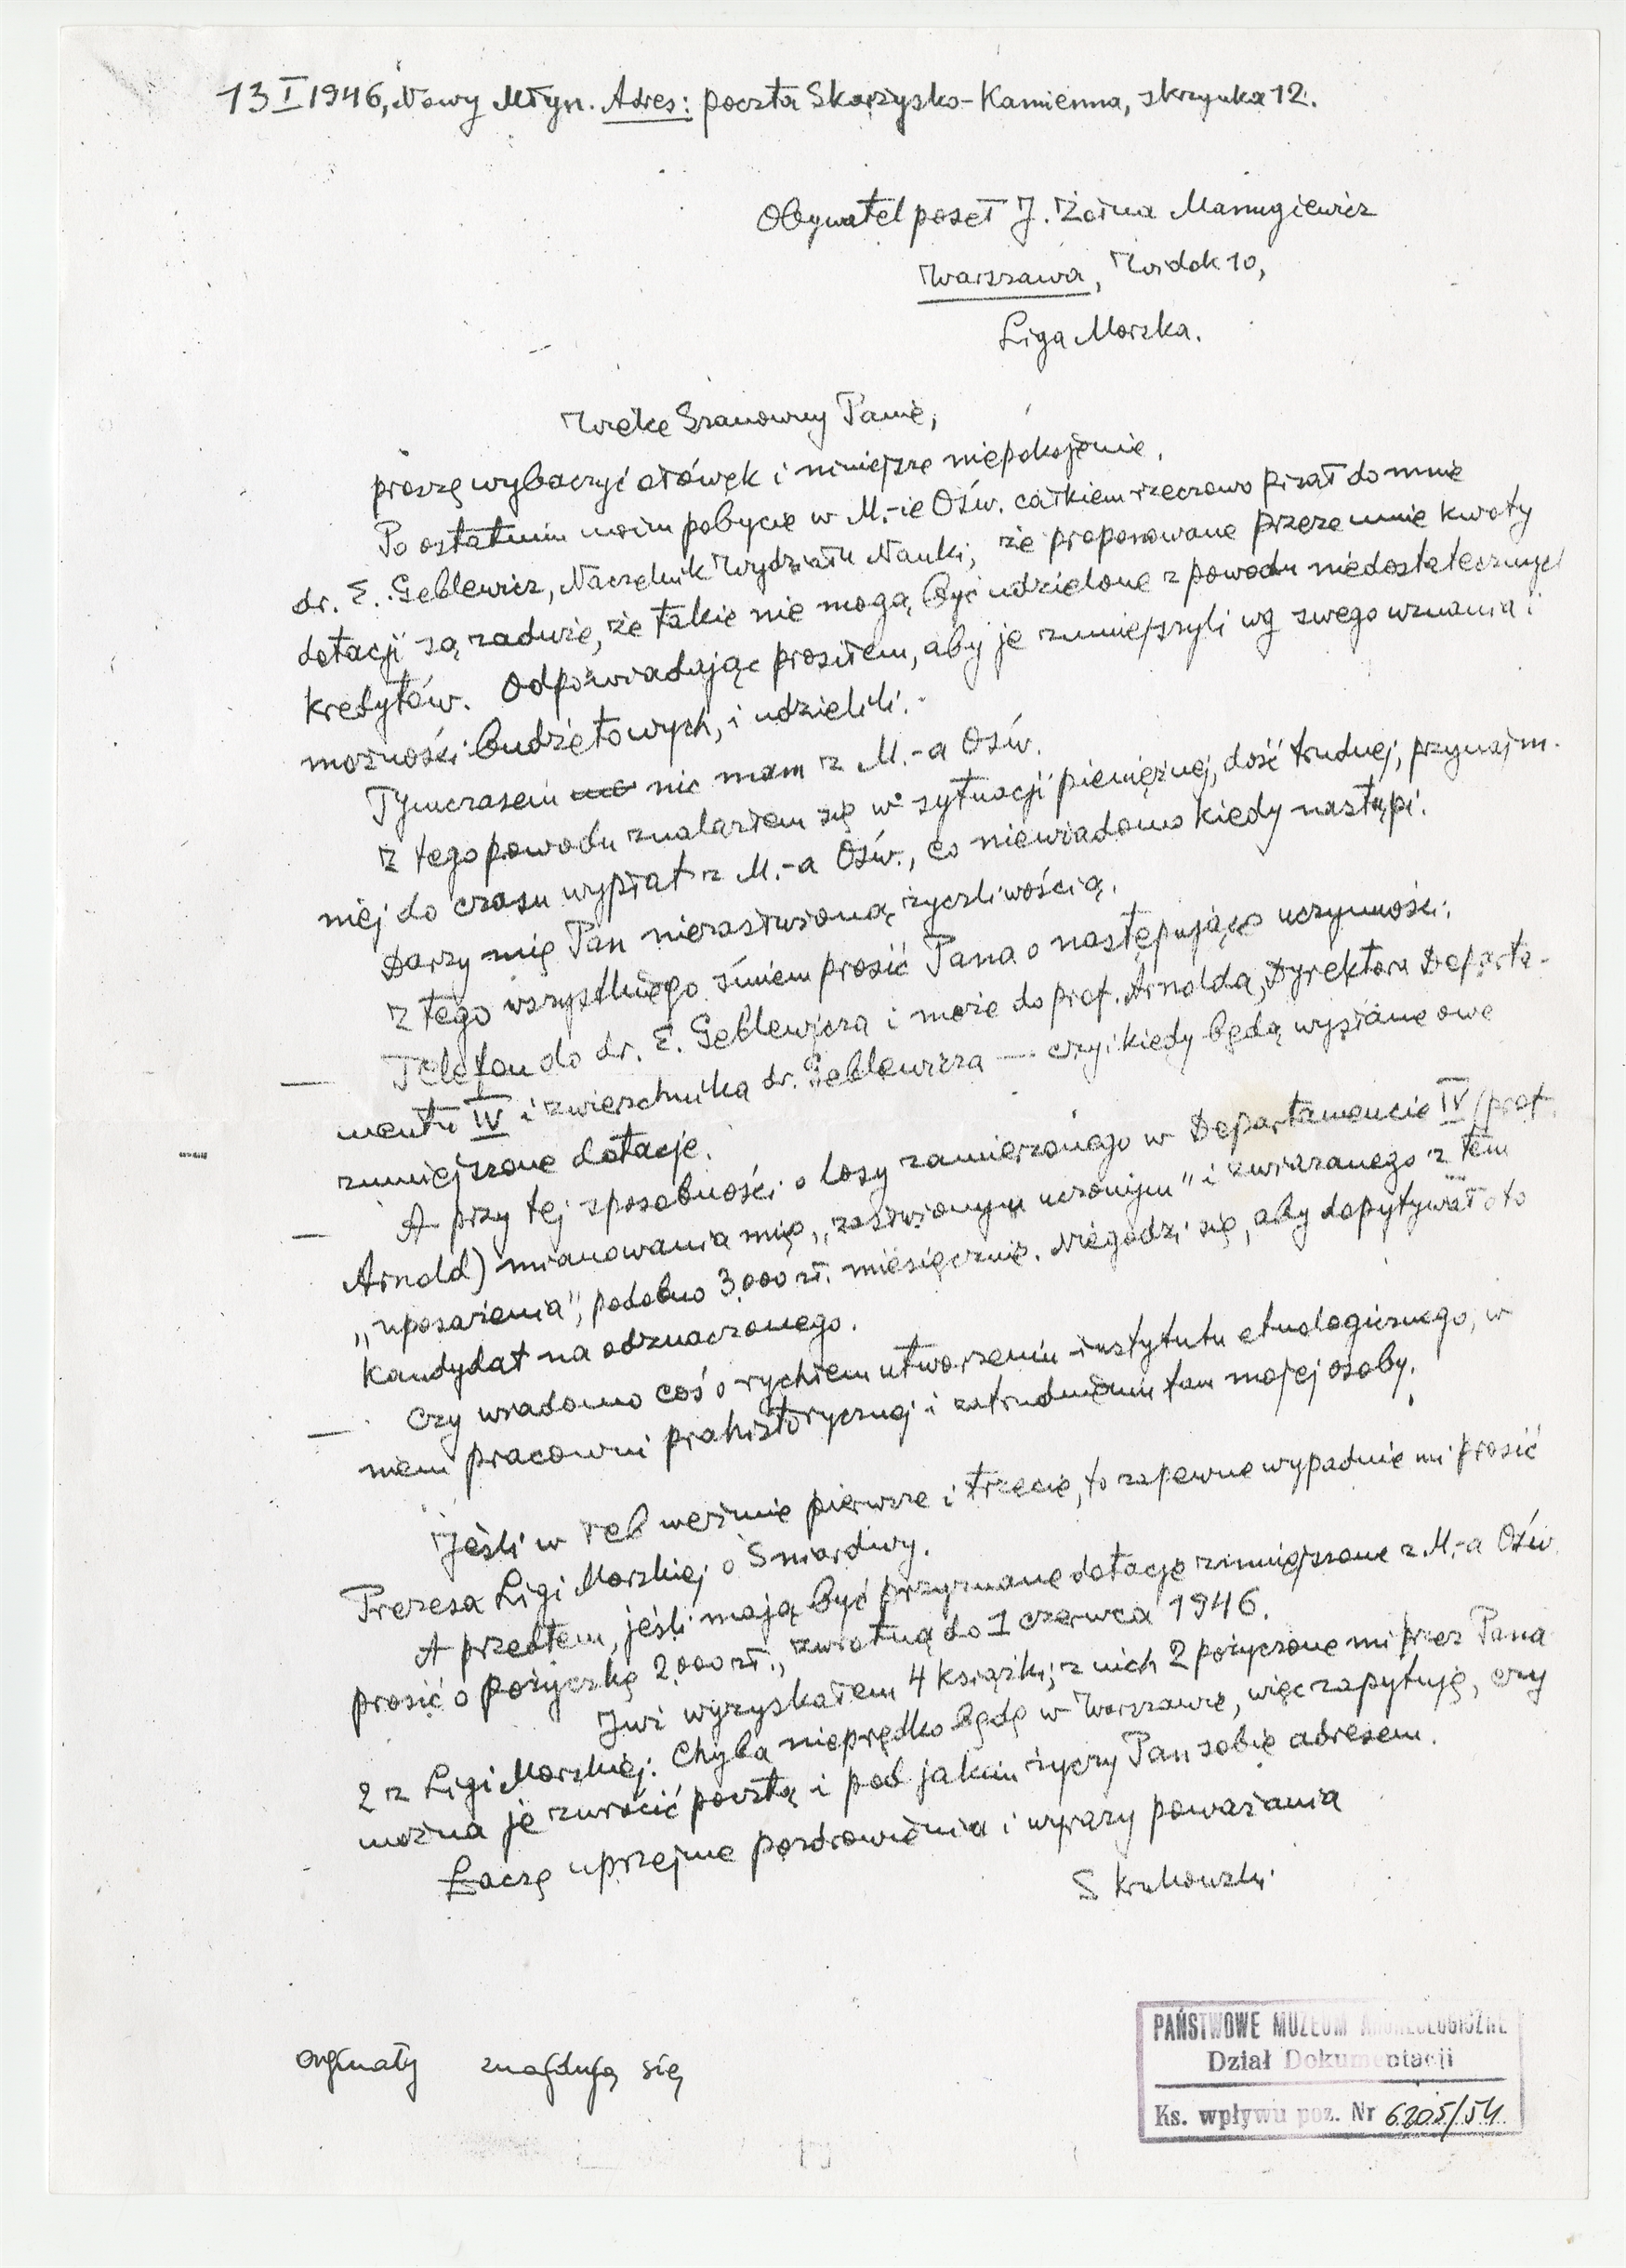 13 I 1946, Nowy Młyn. Adres: poczta Skarżysko-Kamienna, skrzynka 12.
Obywatel poseł J. Żołna Manugiewicz
Warszawa, Widok 10,
Liga Morska.
Wielce Szanowny Panie,
proszę wybaczyć ołówek i niniejsze niepokojenie.
Po ostatnim moim pobycie w M.-ie Ośw. całkiem rzeczowo pisał do mnie
dr. E. Geblewicz, Naczelnik Wydziału Nauki, że proponowane przeze mnie kwoty
dotacji są zaduże, że takie nie mogą być udzielone z powodu niedostatecznych
kredytów. Odpowiadając prosiłem, aby je zmniejszyli wg swego uznania i
możności budżetowych, i udzielili.
Tymczasem nic mam z M.-a Ośw.
Z tego powodu znalazłem się w sytuacji pieniężnej, dość trudnej, przynajm-
niej do czasu wypłat z M.-a Ośw., co niewiadomo kiedy nastąpi.
Darzy mię Pan niezasłużoną życzliwością.
Z tego wszystkiego śmiem prosić Pana o następujące uczynności:
— Telefon do dr. E. Geblewicza i może do prof. Arnolda, Dyrektora Departa-
mentu IV i zwierzchnika dr. Geblewicza — czy i kiedy będą wysłane owe
zmniejszone dotacje.
— A przy tej sposobności o losy zamierzonego w Departamencie IV (prof.
Arnold) mianowania mię „zasłużonym uczonym" i związanego z tem
„uposażenia", podobno 3.000 zł. miesięcznie. Niegodzi się, aby dopytywał o to
kandydat na odznaczonego.
— Czy wiadomo coś o rychłem utworzeniu instytutu etnologicznego, w
niem pracowni prahistorycznej i zatrudnieniu tam mojej osoby.
Jeśli w łeb weźmie pierwsze i trzecie, to zapewne wypadnie mi prosić
Prezesa Ligi Morskiej o Śniardwy.
A przedtem, jeśli mają być przyznane dotacje zmniejszone z M.-a Ośw.
prosić o pożyczkę 2.000 zł., zwrotną do 1 czerwca 1946.
Już wyzyskałem 4 książki; z nich 2 pożyczone mi przez Pana
2 z Ligi Morskiej. Chyba nieprędko będę w Warszawie, więc zapytuję, czy
można je zwrócić pocztą i pod jakim życzy Pan sobie adresem.
Łączę uprzejme pozdrowienia i wyrazy poważania
S Krukowski
orginały znajdują się
PAŃSTWOWE MUZEUM ARCHEOLOGICZNE
Dział Dokumentacji
Ks. wpływu poz. Nr 6205/54